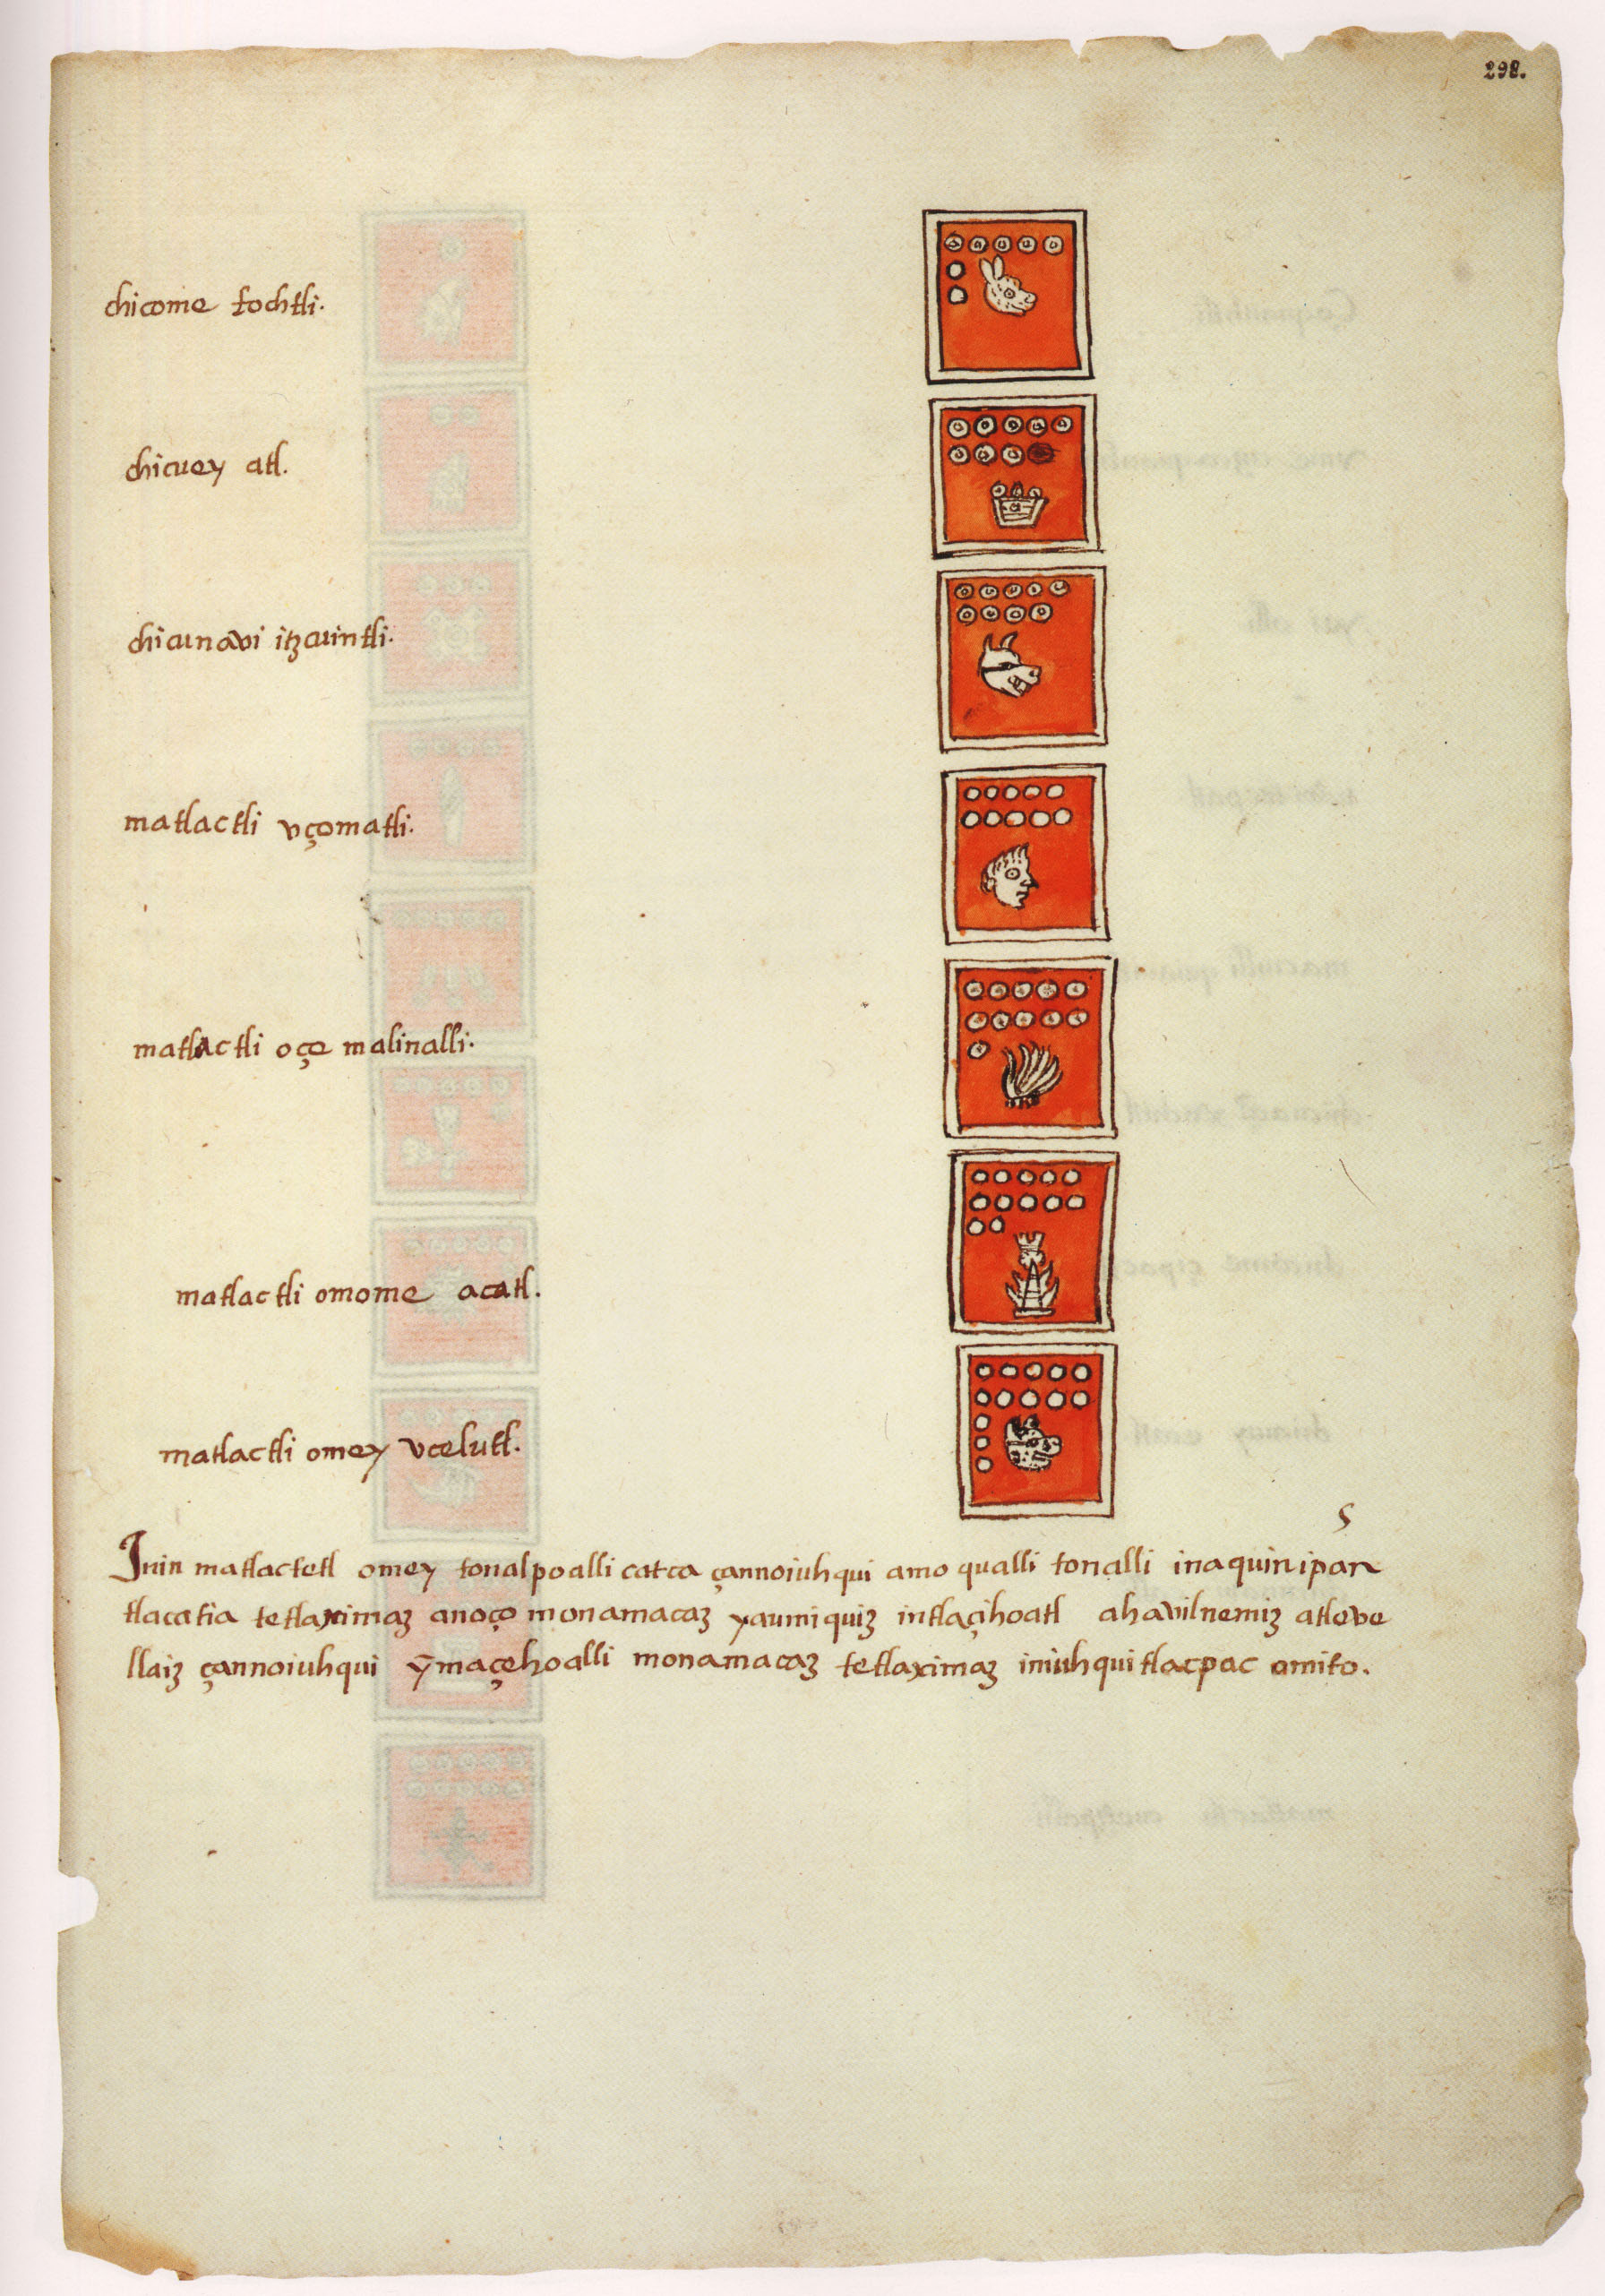 298.
chicome tochtli.
chicuey atl.
chicunavi itzcuintli.
matlactli vçomatli.
matlactli oçe malinalli.
matlactli omome acatl.
matlactli omey vcelutl.
Inin matlactetl omey tonalpoalli catca çannoiuhqui amo qualli tonalli inaquin ipan
tlacatia tetlaximaz anoço monamacaz yaumiquiz intlaçihoatl ahavilnemiz atleve
llaiz çannoiuhqui ỹmaçehoalli monamacaz tetlaximaz iniuhqui tlacpac omito.